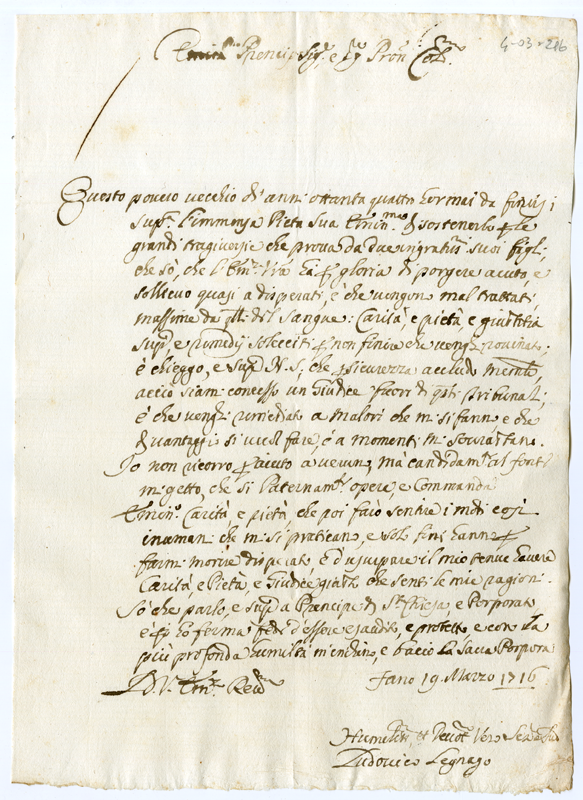 4-03-216
Emin.mo Prencipe Sig.r e
Questo povero vecchio di anni ottanta quattro hormai da finirsi
sup.ca l'immensa Pieta Sua Emin.ma di sostenerlo p le
grandi che prova da due ingratiss.i suoi figli,
che sò, che l'Em.za V.ra hà p gloria di porgere aiuto, e
sollievo quasi a disperati, e che vengon mal trattati
massime da q.lli del sangue: Carità, e pietà, e giustitia
sup.ca, e rimedij solleciti p non finir che venghi rovinato,
e chieggo, e sup.co N. S., che p sicurezza
acciò siami concesso un Giudice fuori di q.sti Tribunali,
e che venghi rimediato a malori che mi si fanno, e che
di vantaggio si vuol fare, e a momenti mi sovrastano.
Io non ricorro p aiuto a veruno, mà candidam.te al fonte
mi getto, che si Paternam.te opera, e Commanda
Emin.a Carità e pietà, che poi farò sentire i modi così
inumani che mi si praticano, e solo fini hanno p
farmi morire disperato, e d'usurpare il mio tenue havere
Carità, e Pietà, e Giudice giusto che senti le mie ragioni.
Sò che parlo, e sup.co a Prencipe di S.ta Chiesa, e Porporato,
e p ciò hò ferma fede d'essere esaudito, e protetto e con la
più profonda humiltà m'enchino, e bacio la Sacra Porpora
D. V. Em.za Rev.ma Fano 19 Marzo 1716
Humiliss.o, et Devot.o Vero Ser.e
Ludovico Legnago